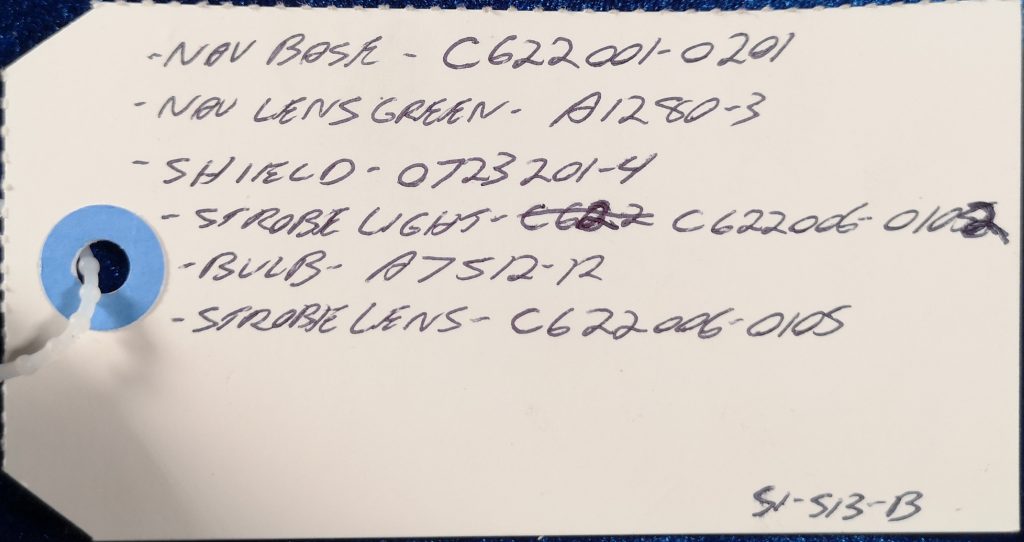 - NAV BASE - C622001-0201
- NAV LENS GREEN - A1280-3
- SHIELD - 0723201-4
- STROBE LIGHT - C622 C622006-0102
- BULB - A7512-12
- STROBE LENS - C622006-0105
S1-S13-B